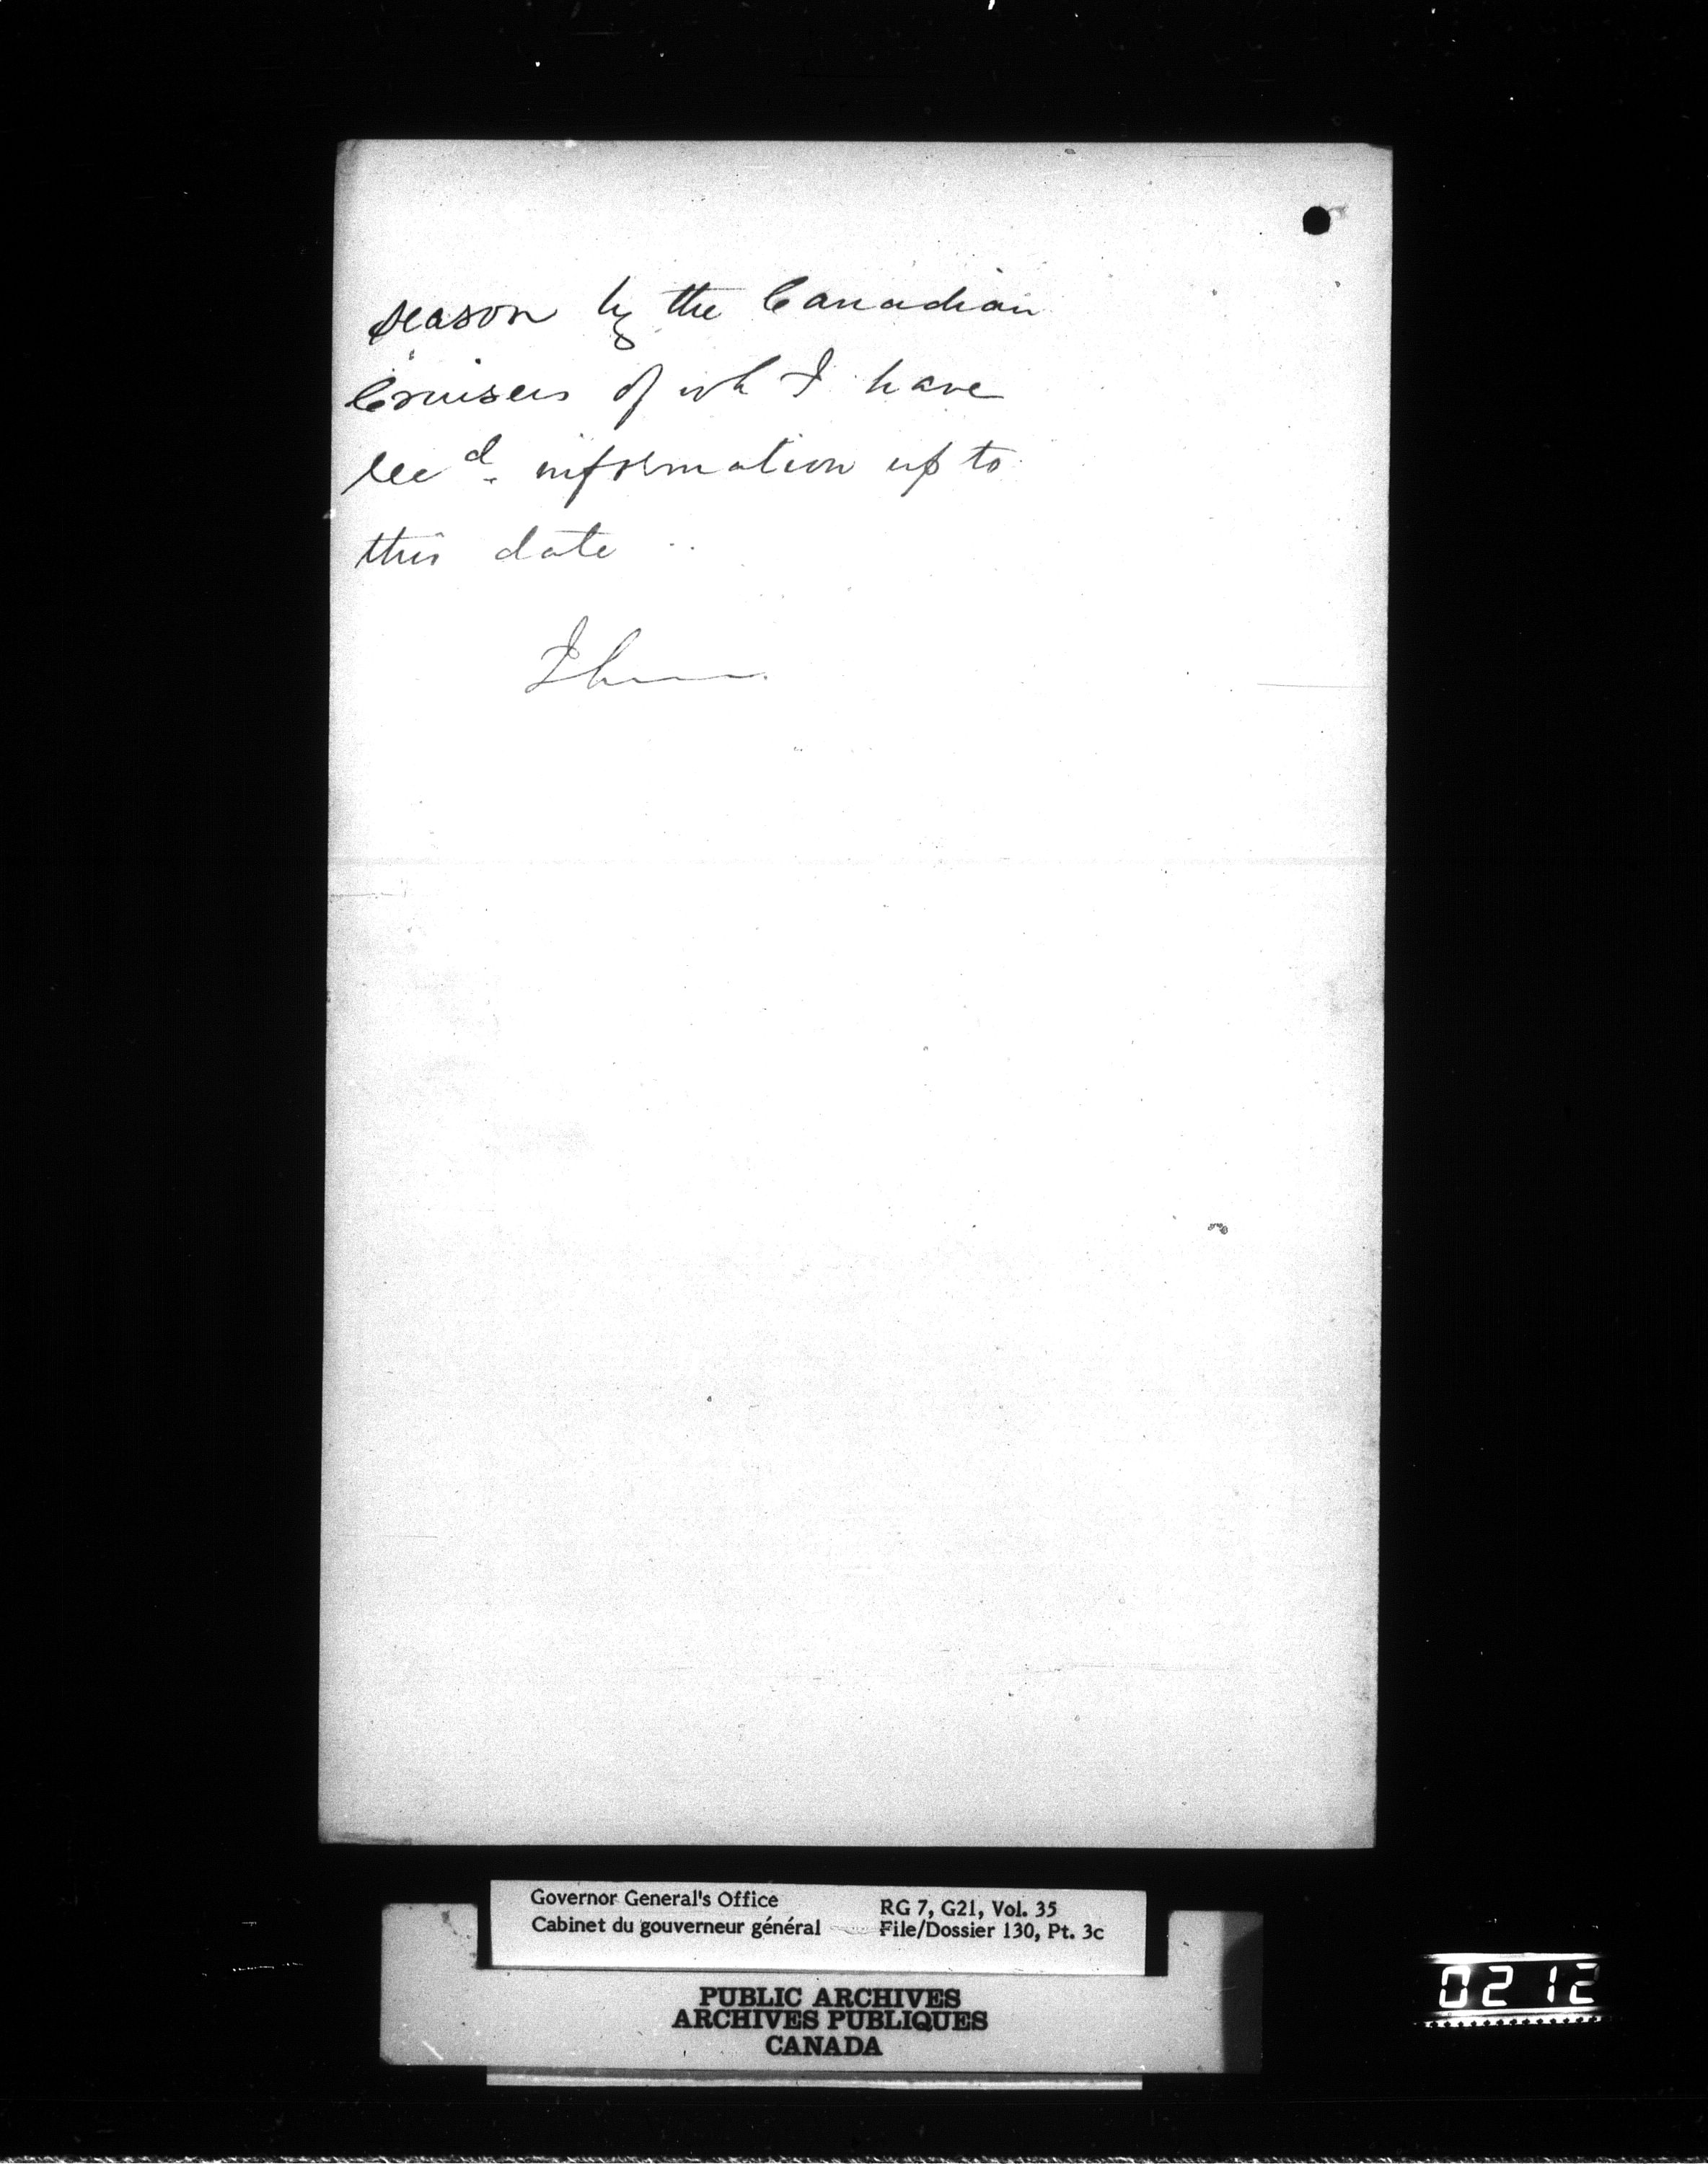 season by the Canadian
Cruisers of wh I have
recd. information up to
this date
I h
Governor General's Office
Cabinet du gouverneur général
RG 7, G21, Vol. 35
File/Dossier 130, Pt. 3c
PUBLIC ARCHIVES
ARCHIVES PUBLIQUES
CANADA
0212